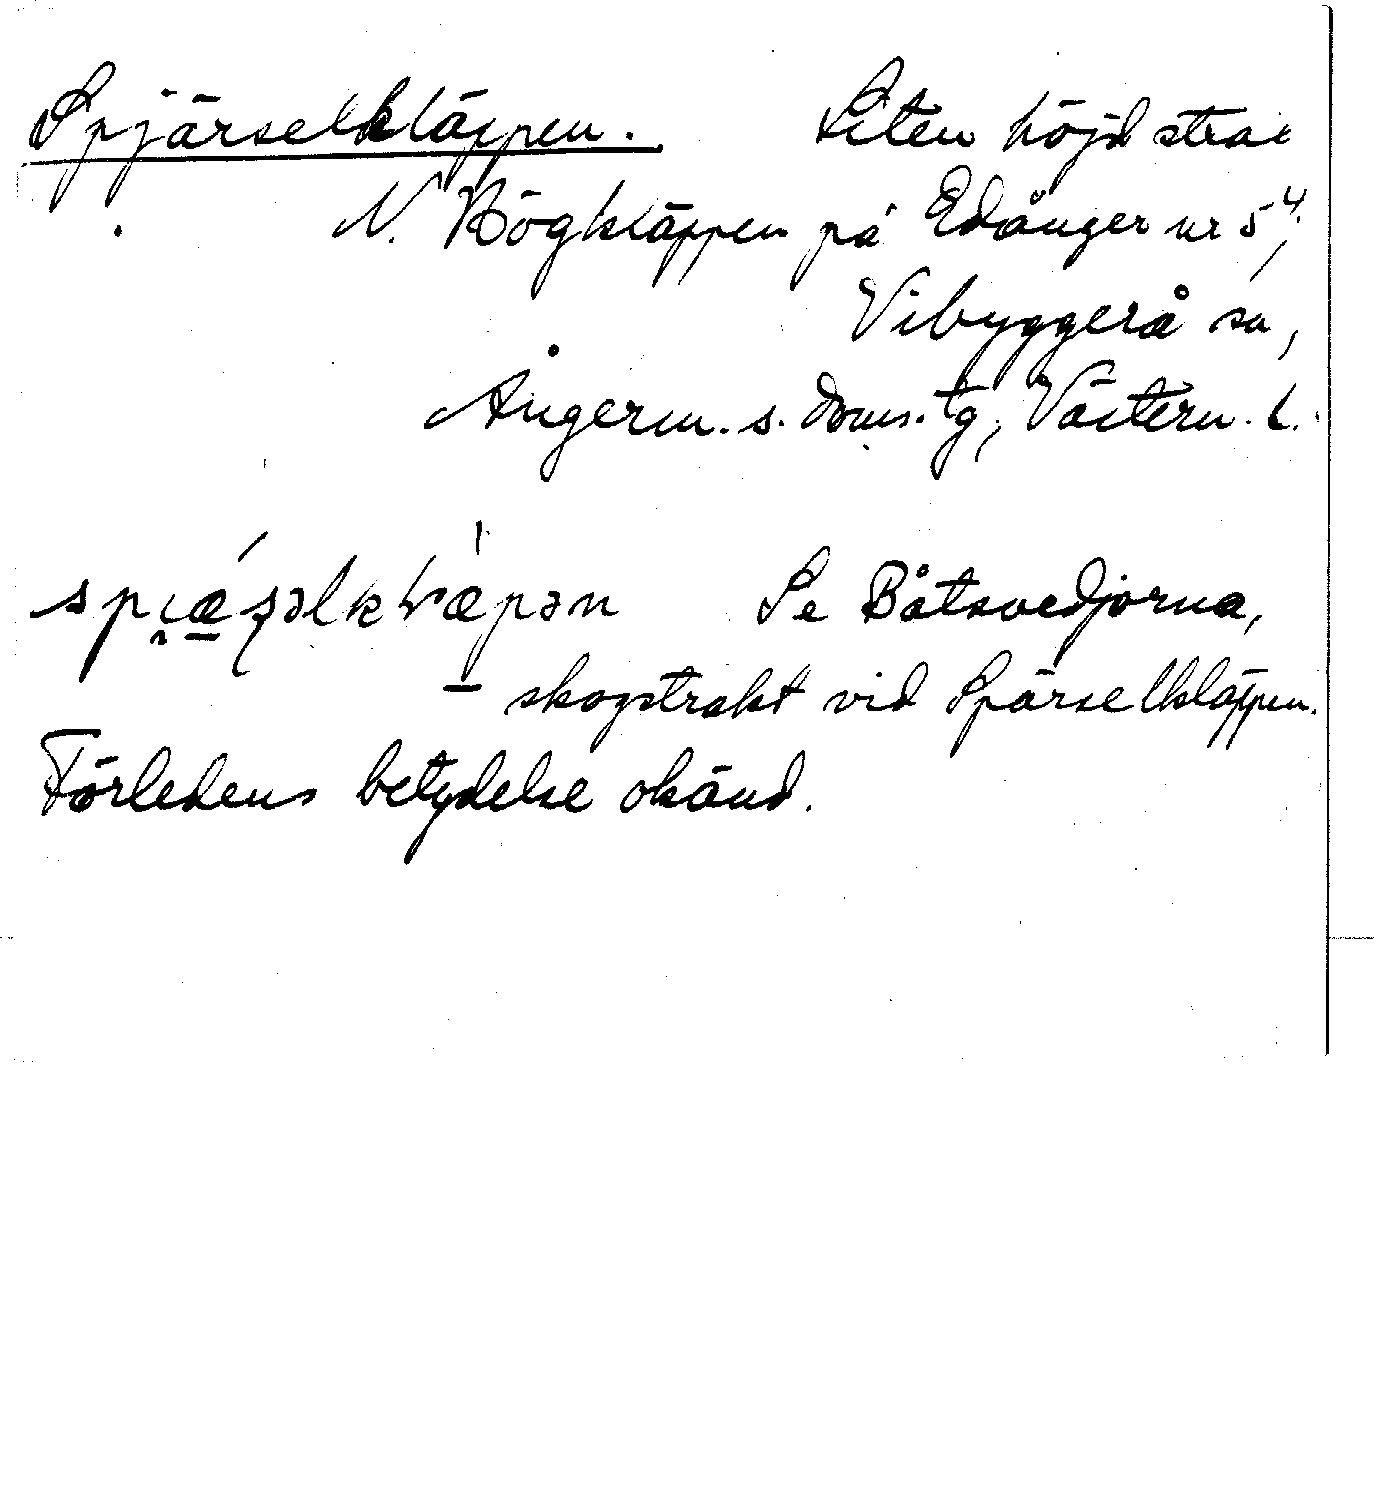 Spjärselkläppen. Liten höjd strax
N. Högkläppen på Edånger nr 5⁴,
Vibyggerå sn,
Ångerm. s. doms. tg, Västern. l.
Se Båtsvedjorna,
skogstrakt vid Spärselkläppen.
Förledens betydelse okänd.